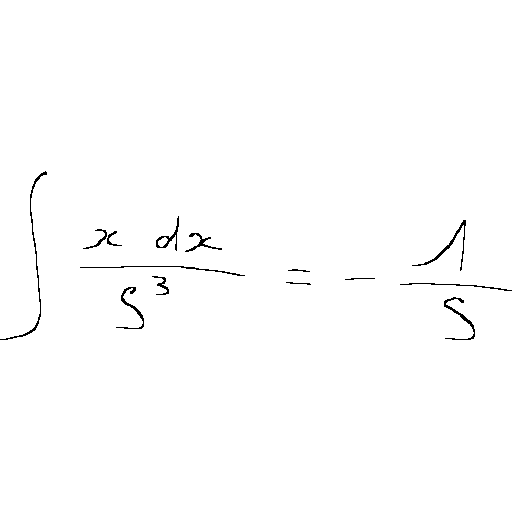 ∫ x dx / s³ = - 1 / s